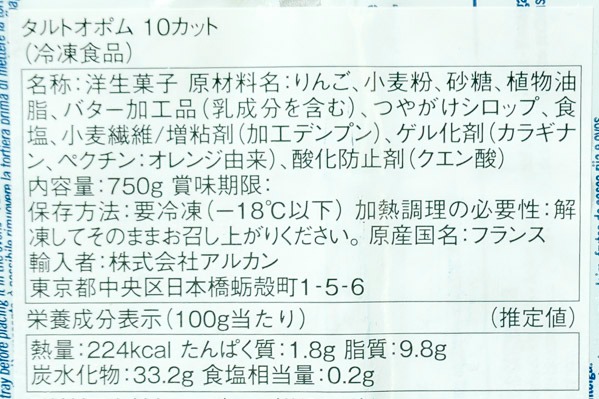 タルトオポム 10カット
(冷凍食品)
名称:洋生菓子 原材料名:りんご、小麦粉、砂糖、植物油
脂、バター加工品(乳成分を含む)、つやがけシロップ、食
塩、小麦繊維/増粘剤(加工デンプン)、ゲル化剤(カラギナ
ン、ペクチン:オレンジ由来)、酸化防止剤(クエン酸)
内容量:750g 賞味期限:
保存方法:要冷凍(−18℃以下) 加熱調理の必要性:解
凍してそのままお召し上がりください。原産国名:フランス
輸入者:株式会社アルカン
東京都中央区日本橋蛎殻町1-5-6
栄養成分表示(100g当たり) (推定値)
熱量:224kcal たんぱく質:1.8g 脂質:9.8g
炭水化物:33.2g 食塩相当量:0.2g
tray before placing it in the
è possibile rimuovere la tortiera prima di mettere la